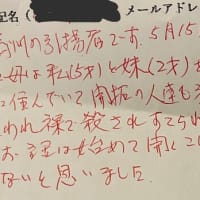 記名( メールアドレ
川の引揚者です。5月15
母は私(5才)と妹(2才)
に住んでいて開拓の人達も
われ裸で殺されすてられ
お話は始めて聞くこ
ないと思いました。